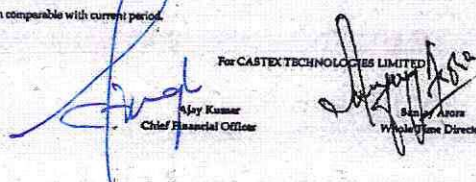 n comparable with current period.
For CASTEX TECHNOLOGIES LIMITED
Ajay Kumar
Chief Financial Officer
Sanjay Arora
Whole Time Directo